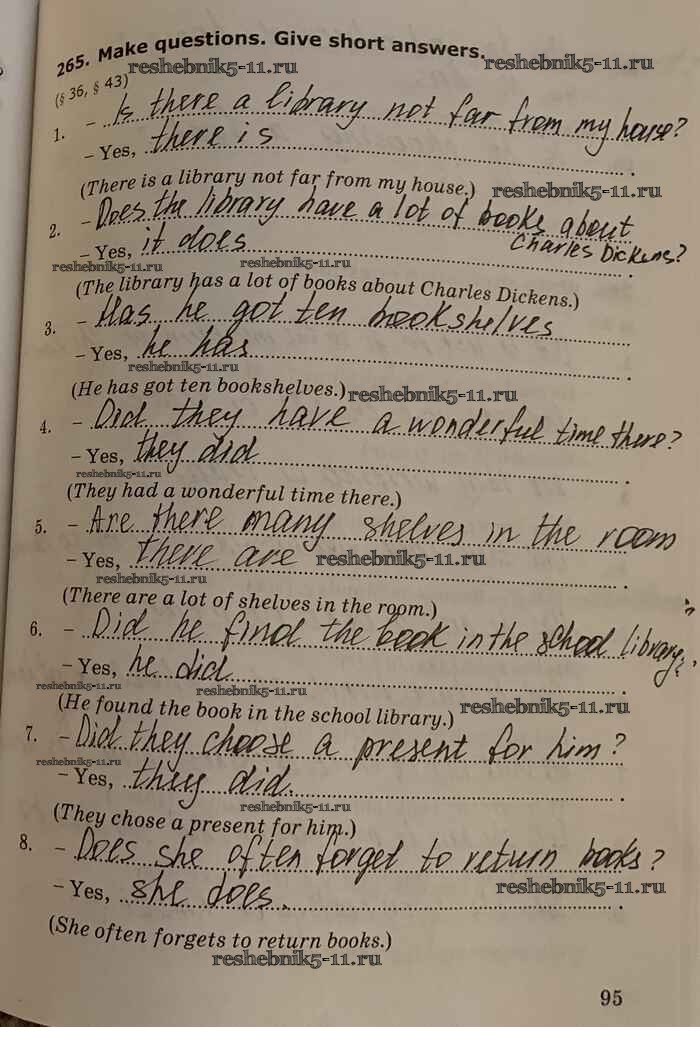 265. Make questions. Give short answers.
reshebnik5-11.ru reshebnik5-11.ru
(§ 36, § 43)
1. – Is there a library not far from my house?
– Yes, there is.
(There is a library not far from my house.) reshebnik5-11.ru
2. – Does the library have a lot of books about
Charles Dickens?
– Yes, it does.
reshebnik5-11.ru reshebnik5-11.ru
(The library has a lot of books about Charles Dickens.)
3. – Has he got ten bookshelves
– Yes, he has.
reshebnik5-11.ru
(He has got ten bookshelves.) reshebnik5-11.ru
4. – Did they have a wonderful time there?
– Yes, they did.
reshebnik5-11.ru
(They had a wonderful time there.)
5. – Are there many shelves in the room
– Yes, there are. reshebnik5-11.ru
reshebnik5-11.ru
(There are a lot of shelves in the room.)
6. – Did he find the book in the school library?
– Yes, he did.
reshebnik5-11.ru reshebnik5-11.ru
(He found the book in the school library.) reshebnik5-11.ru
7. – Did they choose a present for him?
reshebnik5-11.ru
– Yes, they did.
reshebnik5-11.ru
(They chose a present for him.)
8. – Does she often forget to return books?
– Yes, she does. reshebnik5-11.ru
(She often forgets to return books.)
reshebnik5-11.ru
95